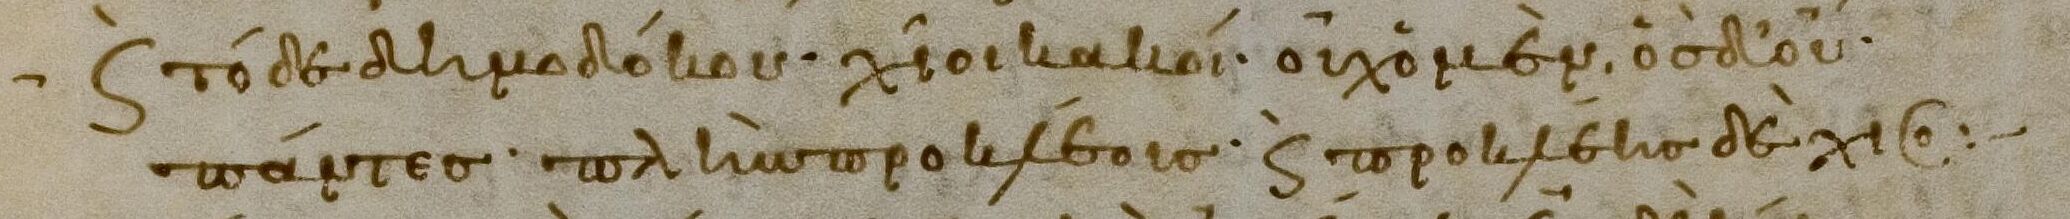 ¬ Ϛ̀ τόδε δημοδόκου· χῖοι κακοί· οὐχ ὁ μὲν, ὃσ δ' οὔ·
πάντεσ· πλὴν προκλέουσ· Ϛ̀ προκλέησ δὲ χῖοσ:-